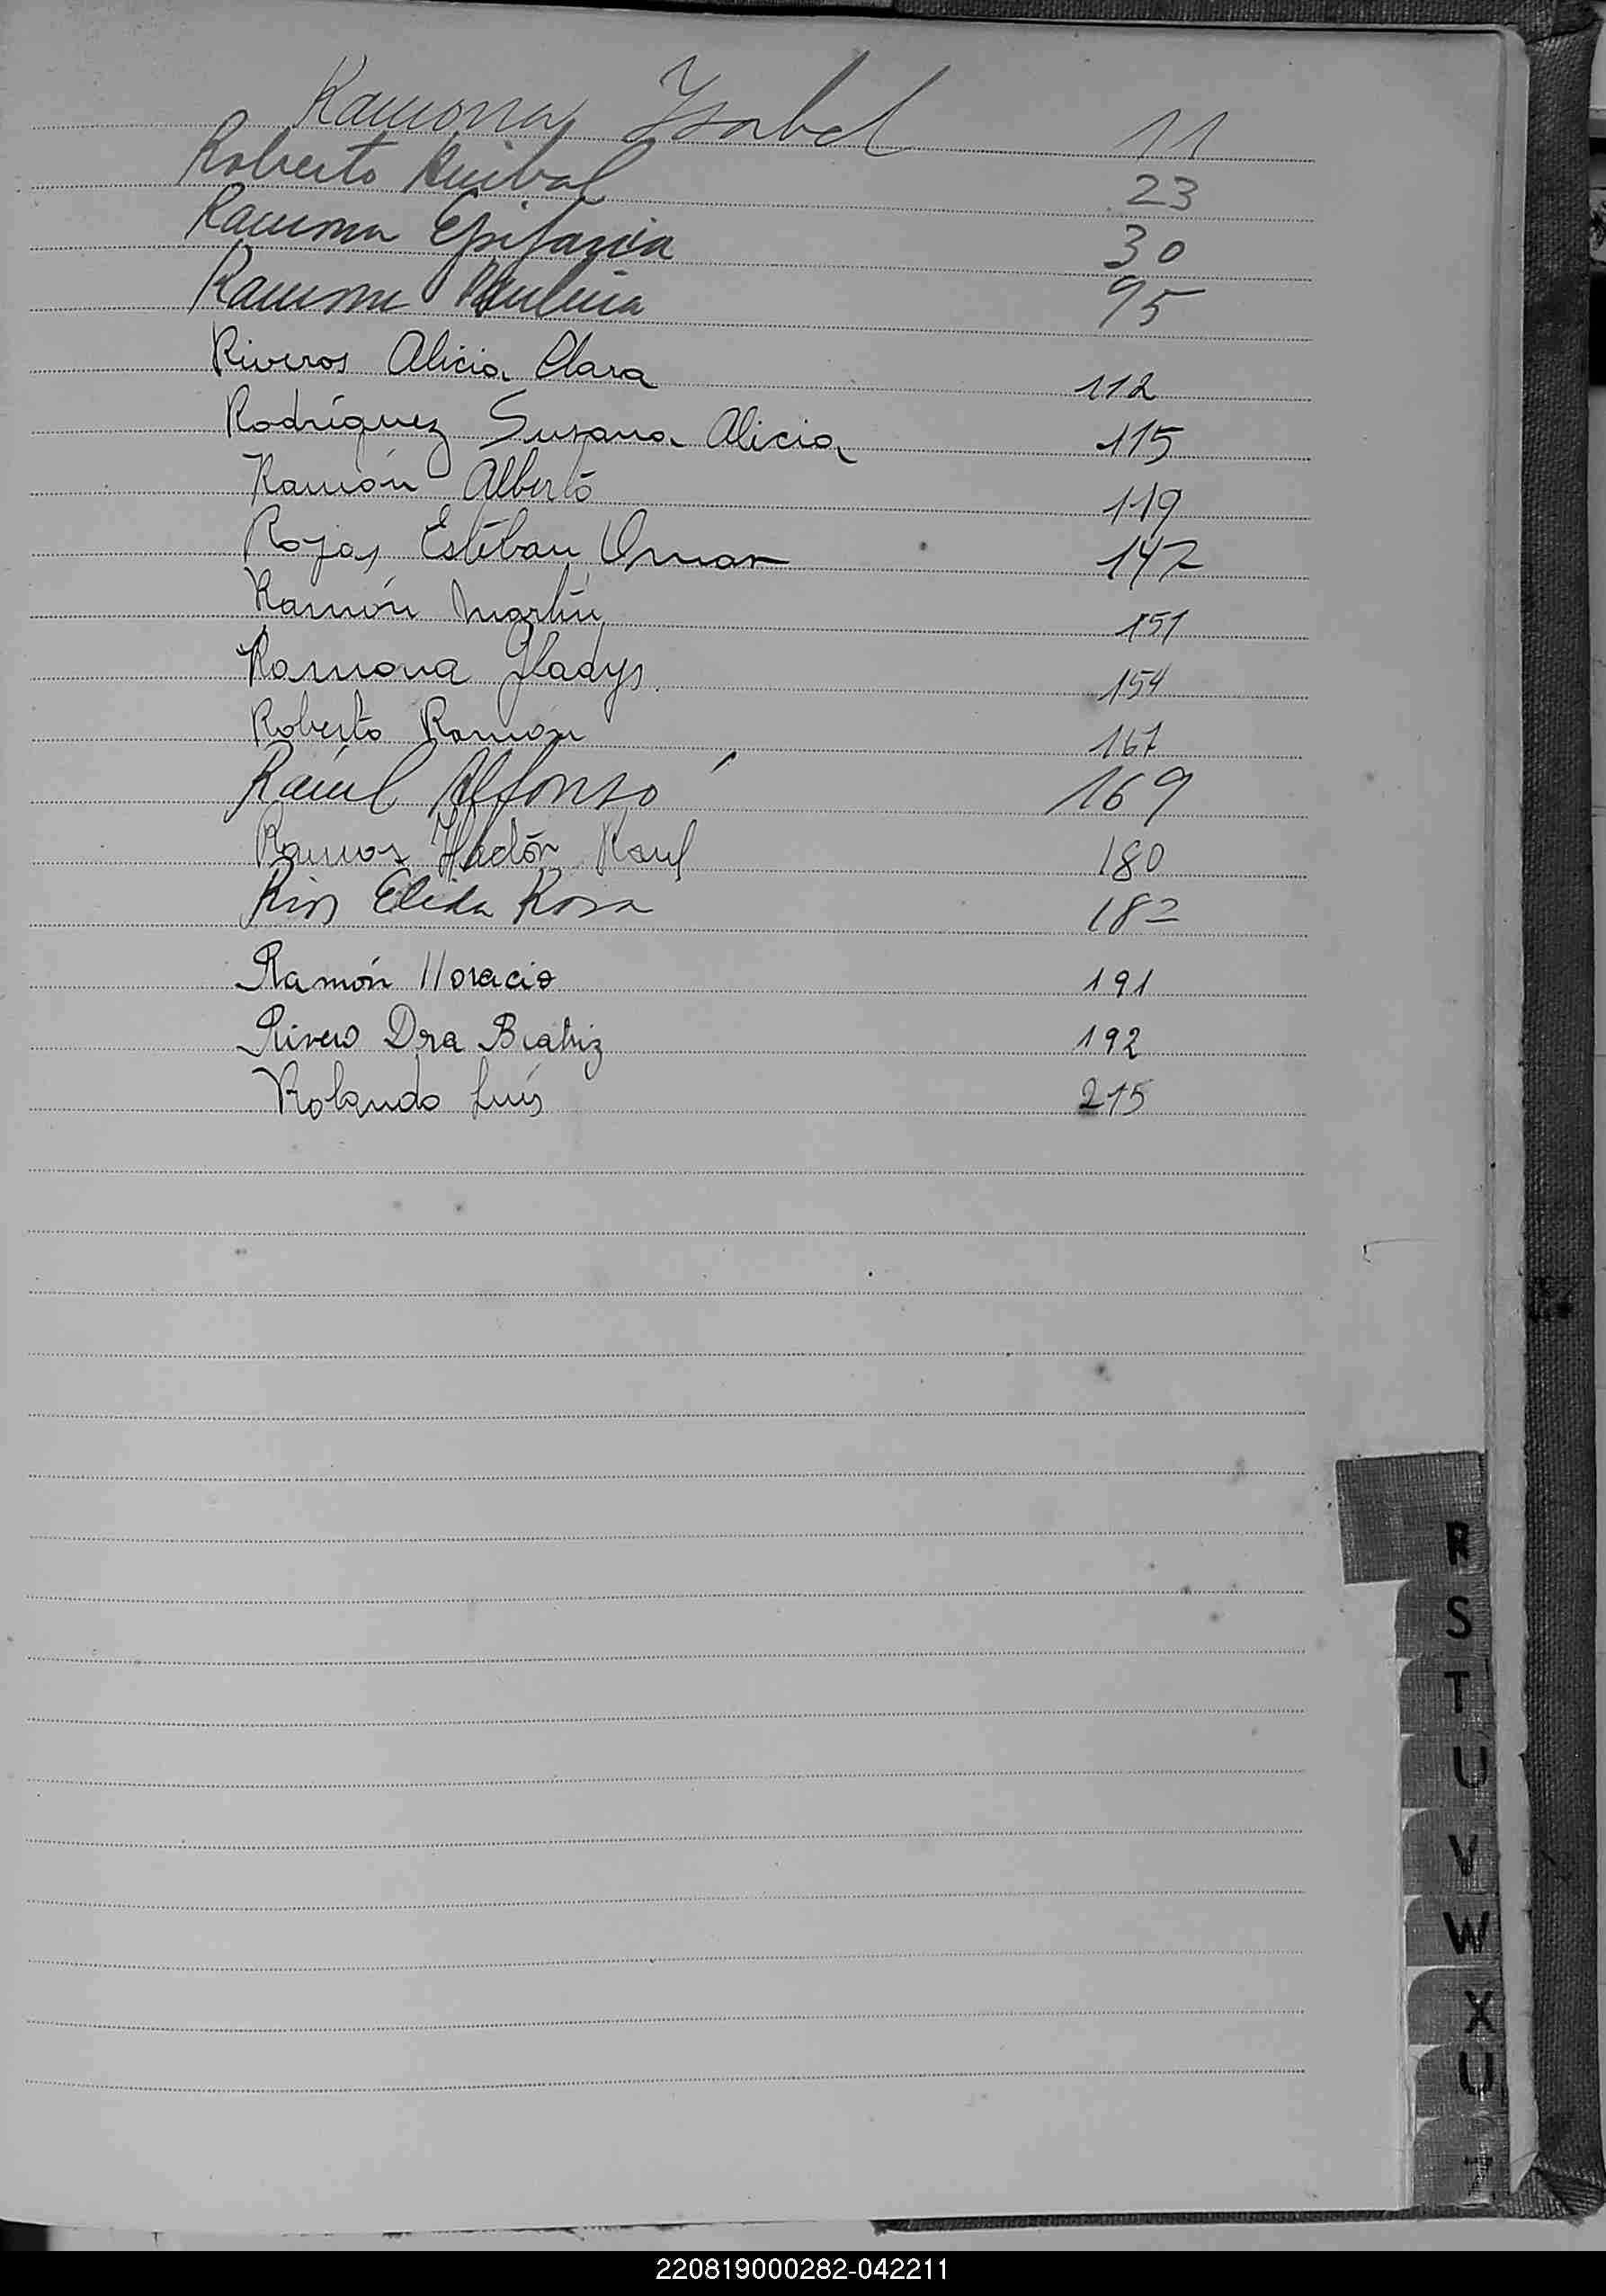 Ramona Ysabel 11
Roberto Anibal 23
Ramona Epifania 30
Ramona Paulina 95
Riveros Alicia Clara 112
Rodríguez Susana Alicia 115
Ramón Alberto 119
Rojas Estéban Omar 147
Ramón Martín 151
Ramona Gladys 154
Roberto Ramón 167
Raúl Alfonso 169
Ramos Raul 180
Rios Elida Rosa 182
Ramón Horacio 191
Rivero Dra Beatriz 192
Rolando Luis 215
R
S
T
U
V
W
X
U
220819000282-042211